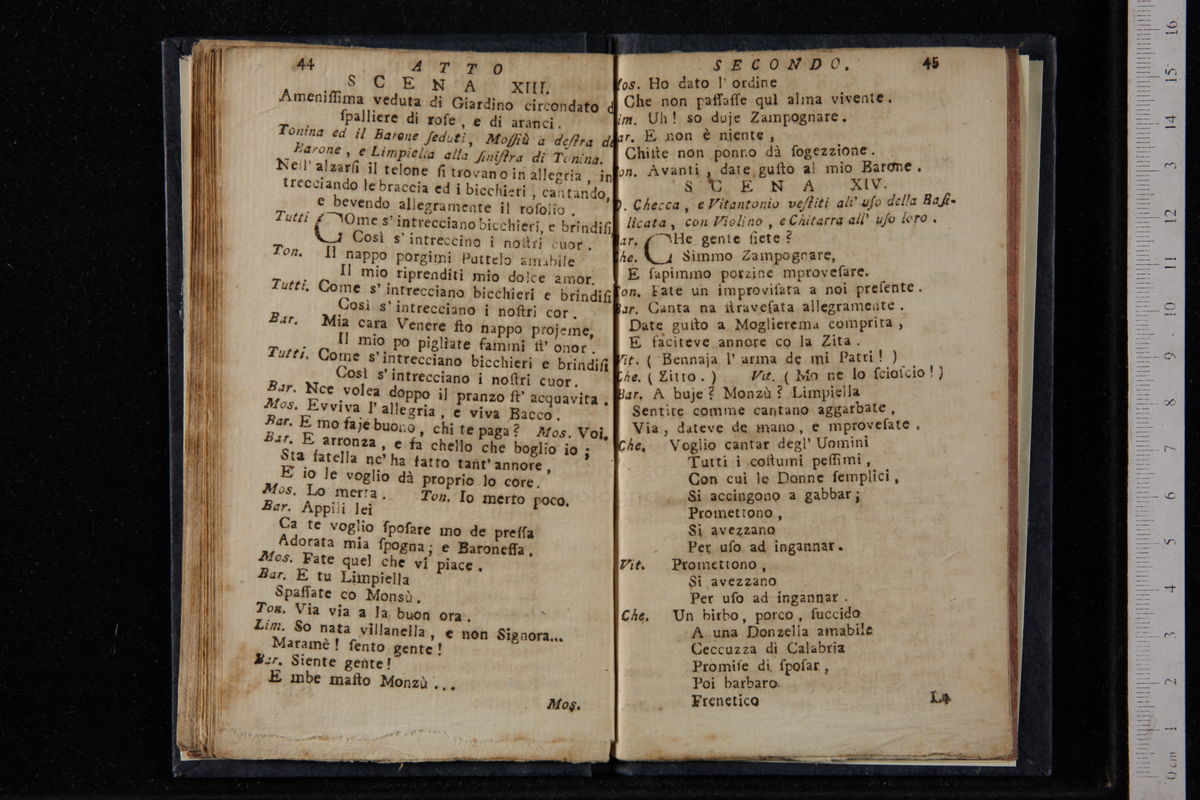 44 ATTO
SCENA XIII.
Ameniſſima veduta di Giardino circondato d
ſpalliere di roſe, e di aranci.
Tonina ed il Barone ſeduti, Moſſiù a deſtra de
Barone, e Limpiella alla ſiniſtra di Tonina.
Nell' alzarſi il telone ſi trovano in allegria, in
trecciando le braccia ed i bicchieri, cantando,
e bevendo allegramente il roſolio.
Tutti COme s' intrecciano bicchieri, e brindiſi
Così s' intreccino i noſtri cuor.
Ton. Il nappo porgimi Puttelo amabile
Il mio riprenditi mio dolce amor.
Tutti. Come s' intrecciano bicchieri e brindiſi
Così s' intrecciano i noſtri cor.
Bar. Mia cara Venere ſto nappo projeme,
Il mio po pigliate fammi ſt' onor.
Tutti. Come s' intrecciano bicchieri e brindiſi
Così s' intrecciano i noſtri cuor.
Bar. Nce volea doppo il pranzo ſt' acquavita.
Mos. Evviva l' allegria, e viva Bacco.
Bar. E mo faje buono, chi te paga? Mos. Voi.
Bar. E arronza, e fa chello che boglio io;
Sta fatella nc' ha fatto tant' annore,
E io le voglio dà proprio lo core.
Mos. Lo merta. Ton. Io merto poco.
Bar. Appili lei
Ca te voglio ſpoſare mo de preſſa
Adorata mia ſpogna; e Baroneſſa.
Mos. Fate quel che vi piace.
Bar. E tu Limpiella
Spaſſate co Monsù.
Ton. Via via a la buon ora.
Lim. So nata villanella, e non Signora...
Maramè! ſento gente!
Bar. Siente gente!
E mbe maſto Monzù...
Mos.
SECONDO. 45
Mos. Ho dato l' ordine
Che non paſſaſſe quì alma vivente.
Lim. Uh! so duje Zampognare.
Bar. E non è niente,
Chiſte non ponno dà ſogezzione.
Ton. Avanti, date guſto al mio Barone.
SCENA XIV.
D. Checca, e Vitantonio veſtiti all' uſo della Baſi-
licata, con Violino, e Chitarra all' uſo loro.
Bar. CHe gente ſiete?
Che. Simmo Zampognare,
E ſapimmo porzine mproveſare.
Ton. Fate un improviſata a noi preſente.
Bar. Canta na ſtraveſata allegramente.
Date guſto a Moglierema comprita,
E faciteve annore co la Zita.
Vit. ( Bennaja l' arma de mi Patri! )
Che. ( Zitto. ) Vit. ( Mo ne lo ſcioſcio! )
Bar. A buje? Monzù? Limpiella
Sentite comme cantano aggarbate,
Via, dateve de mano, e mproveſate.
Che. Voglio cantar degl' Uomini
Tutti i coſtumi peſſimi,
Con cui le Donne ſemplici,
Si accingono a gabbar;
Promettono,
Si avezzano
Per uſo ad ingannar.
Vit. Promettono,
Si avezzano
Per uſo ad ingannar.
Che. Un birbo, porco, ſuccido
A una Donzella amabile
Ceccuzza di Calabria
Promiſe di ſpoſar,
Poi barbaro
Frenetico
La